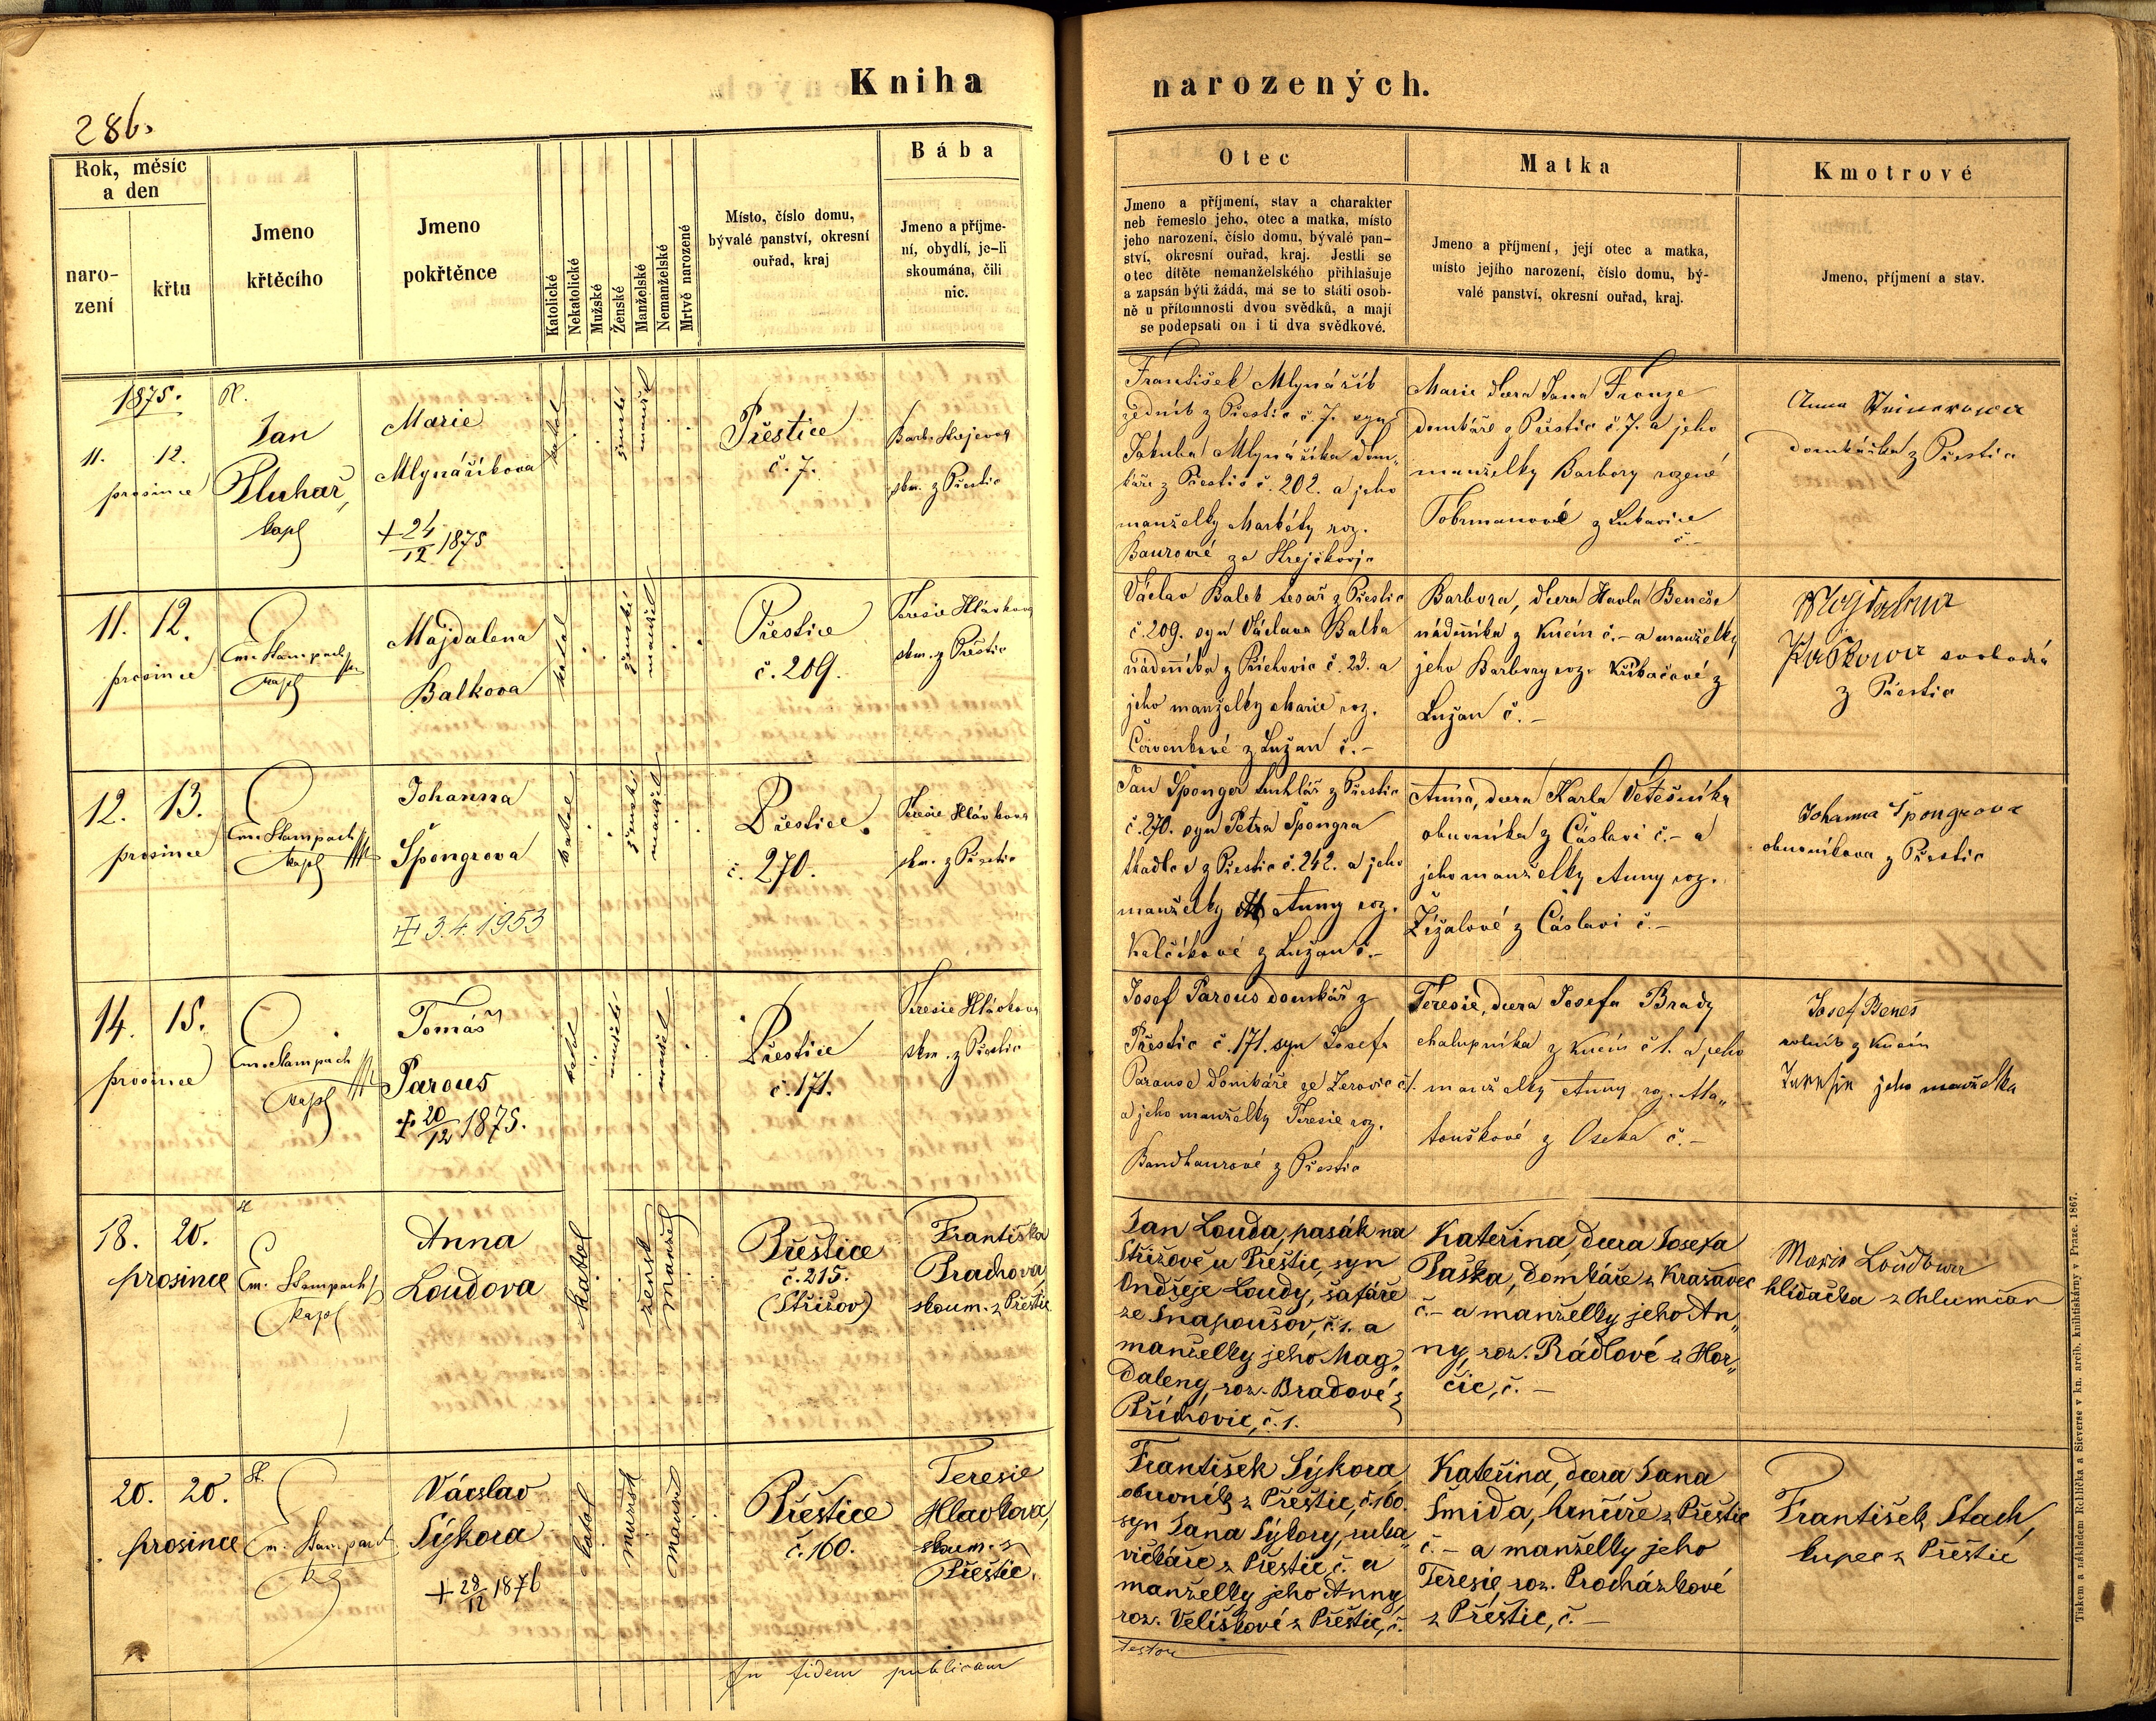 Kniha
narozených.
286.
Rok, měsíc
a den
naro-
zení
křtu
Jmeno
křtěcího
Jmeno
pokřtěnce
Katolické
Nekatolické
Mužské
Ženské
Manželské
Nemanželské
Mrtvě narozené
Místo, číslo domu,
bývalé panství, okresní
ouřad, kraj
Bába
Jmeno a příjme-
ní, obydlí, je-li
skoumána, čili
nic.
Otec
Jmeno a příjmení, stav a charakter
neb řemeslo jeho, otec a matka, místo
jeho narození, číslo domu, bývalé pan-
ství, okresní ouřad, kraj. Jestli se
otec dítěte nemanželského přihlašuje
a zapsán býti žádá, má se to státi osob-
ně u přítomnosti dvou svědků, a mají
se podepsati on i ti dva svědkové.
Matka
Jmeno a příjmení, její otec a matka,
místo jejího narození, číslo domu, bý-
valé panství, okresní ouřad, kraj.
Kmotrové
Jmeno, příjmení a stav.
1875.
11. 12.
prosince
Jan
Pluhař,
kapl
Marie
Mlynáříkova
+ 24/12 1875
katol
ženské
manžel
Přestice
č. 7.
skm. z Přestic
František Mlynářík
zedník z Přestic č. 7. syn
Jakuba Mlynáříka dom„
káře z Přestic č. 202. a jeho
manželky Markéty roz.
Baurové ze
Marie dcera Jana Fronze
domkáře z Přestic č. 7. a jeho
manželky Barbory rozené
z Lukavice
č. –
Anna
domkářka z Přestic
11. 12.
prosince
Em. Stampach
kapl
Majdalena
Balkova
katol
ženské
manžel
Přestice
č. 209.
Teresie Hlávkova
skm. z Přestic
Václav Balek tesař z Přestic
č. 209. syn Václava Balka
nádeníka z Příchovic č. 23. a
jeho manželky Marie roz.
Červenkové z Lužan č. –
Barbora, dcera Havla Beneše
nádeníka z Kucín č. – a manželky
jeho Barbory roz. Křikačové z
Lužan č. –
svobodná
z Přestic
12. 13.
prosince
Em. Stampach
kapl
Johanna
Špongrova
3.4.1953
katol
ženské
manžel
Přestice
č. 270.
Teresie Hlávkova
skm. z Přestic
Jan Šponger truhlář z Přestic
č. 270. syn Petra Špongra
tkadlce z Přestic č. 242. a jeho
manželky Anny roz.
Kalčíkové z Lužan č. –
Anna, dcera Karla Vetešníka
obuvníka z Čáslavi č. – a
jeho manželky Anny roz.
Žížalové z Čáslavi č. –
Johanna Špongrova
obuvníkova z Přestic
14. 15.
prosince
Em. Stampach
kapl
Tomáš
Parous
+ 20/12 1875.
katol
mužské
manžel
Přestice
č. 171.
Teresie Hlávkova
skm. z Přestic
Josef Parous domkář z
Přestic č. 171. syn Josefa
Parousa domkáře ze Zerovic č. 1.
a jeho manželky Teresie roz.
Bandhaurové z Přestic
Teresie, dcera Josefa Brady
chalupníka z Kucín č. 1. a jeho
manželky Anny roz. Ma„
touškové z Oseka č. –
Josef Beneš
rolník z Kucín
jeho manželka
18. 20.
prosince
Em. Stampach
kapl
Anna
Loudova
katol
žensk
manžel
Přeštice
č. 215.
(Střižov)
Františka
Prachova,
skoum. z Přeštic
Jan Louda, pasák na
Střižově u Přeštic, syn
Ondřeje Loudy, šafáře
ze Snapoušov, č. 1. a
manželky jeho Mag„
daleny, roz. Bradové z
Příchovic, č. 1.
Kateřina, dcera Josefa
Paška, domkáře z Krasavec
č. – a manželky jeho An„
ny, roz. Rádlové z Hor„
čic, č. –
Marie Loudowa
hlídačka z Chlumčan
20. 20.
prosince
St.
Em. Stampach
Vácslav
Sýkora
+ 28/12 1876
katol
mužsk
manžel
Přeštice
č. 160.
Teresie
Hlavkova,
skoum. z
Přeštic.
František Sýkora
obuvník z Přeštic, č. 160.
syn Jana Sýkory, ruka„
vičkáře z Přeštic, č. a
manželky jeho Anny,
roz. Velíškové z Přeštic, č.
Kateřina, dcera Jana
Šmida, hrnčíře z Přeštic
č. – a manželky jeho
Teresie, roz. Procházkové
z Přeštic, č. –
František Stach,
kupec z Přeštic
In fidem publicam
testor
Tiskem a nákladem Rohlíčka a Sieverse v kn. arcib. knihtiskárny v Praze. 1867.